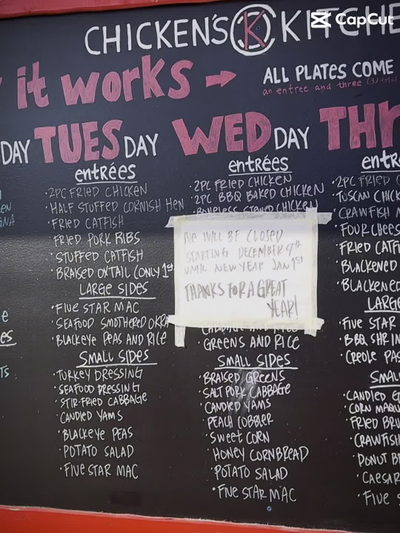 CapCut
CHICKEN'S K KITCHE
it works →
ALL PLATES COME
an entree and three
DAY TUESDAY WEDDAY THU
entrées
2PC FRIED CHICKEN
HALF STUFFED CORNISH HEN
FRIED CATFISH
FRIED PORK RIBS
STUFFED CATFISH
BRAISED OXTAIL (ONLY 1ST
LARGE SIDES
FIVE STAR MAC
SEAFOOD SMOTHERED OKRA
BLACKEYE PEAS AND RICE
SMALL SIDES
TURKEY DRESSING
SEAFOOD DRESSING
STIR-FRIED CABBAGE
CANDIED YAMS
BLACKEYE PEAS
POTATO SALAD
FIVE STAR MAC
entrées
2PC FRIED CHICKEN
2PC BBQ BAKED CHICKEN
BONELESS STEWED CHICKEN
WE WILL BE CLOSED
STARTING DECEMBER 9TH
UNTIL NEW YEAR JAN 1ST
THANKS FOR A GREAT
YEAR!
GREENS AND RICE
SMALL SIDES
BRAISED GREENS
SALT PORK CABBAGE
CANDIED YAMS
PEACH COBBLER
SWEET CORN
HONEY CORNBREAD
POTATO SALAD
FIVE STAR MAC
entré
2PC FRIED
TUSCAN CHICK
CRAWFISH
FOUR CHEES
FRIED CATF
BLACKENED
BLACKENED
LARG
FIVE STAR
BBQ SHR
CREOLE PAS
SMAL
CANDIED
CORN
FRIED BRU
CRAWFISH
DONUT B
CAESAR
FIVE S